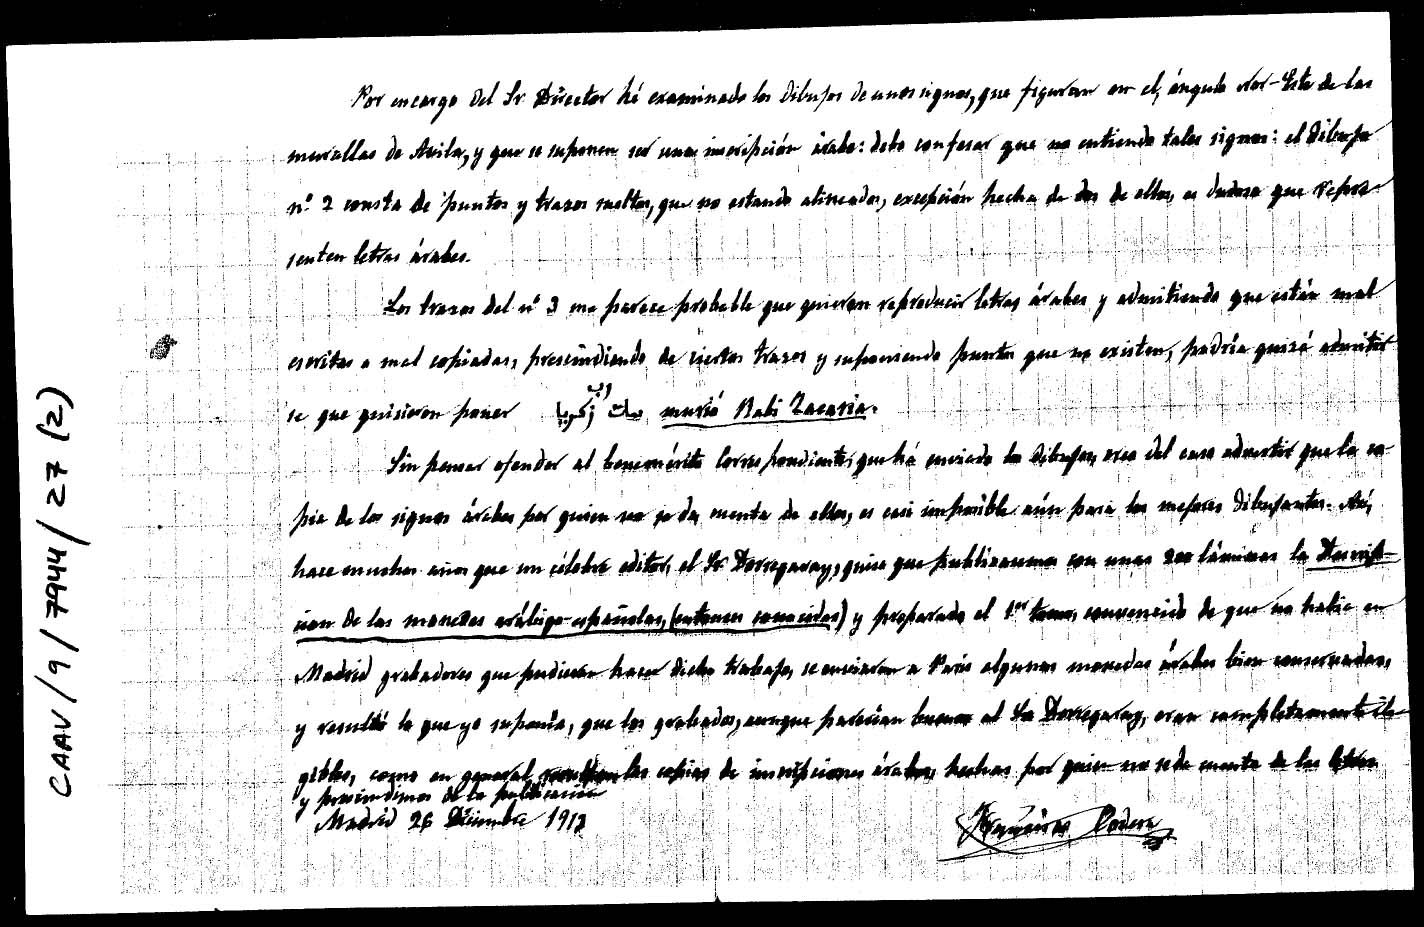 Por encargo del Sr. Director hé examinado los dibujos de unos signos, que figuran en el ángulo Nor-Este de las
murallas de Avila, y que se suponen ser una inscripción árabe: debo confesar que no entiendo tales signos: el dibujo
nº 2 consta de puntos y trazos sueltos, que no estando alineados, excepción hecha de dos de ellos, es dudoso que repre-
senten letras árabes.
Los trazos del nº 3 me parece probable que quieran reproducir letras árabes y admitiendo que están mal
escritas o mal copiadas, prescindiendo de ciertos trazos y suponiendo puntos que no existen, podría quizá admitir
se que quisieron poner مات ربي زكريا murió Rabi Zacaria.
Sin pensar ofender al benemérito Correspondiente, que há enviado los dibujos, creo del caso advertir que la co-
pia de los signos árabes por quien no se da cuenta de ellos, es casi imposible aún para los mejores dibujantes. Así,
hace muchos años que un célebre editor, el Sr. Dorregaray, quiso que publicasemos con unas 200 láminas la Descrip-
cion de las monedas arábigo-españolas, (entonces conocidas) y preparado el 1er tomo, convencido de que no habia en
Madrid grabadores que pudieran hacer dicho trabajo, se enviaron a Paris algunas monedas árabes bien conservadas,
y resultó lo que yo suponía, que los grabados, aunque parecían buenos al Sr. Dorregaray, eran completamente ile-
gibles, como en general las copias de inscripciones árabes, hechas por quien no se da cuenta de las letras
y prescindimos de la publicación
Madrid 26 Diciembre 1912
Francisco Codera
CAAV/9/7944/27(2)